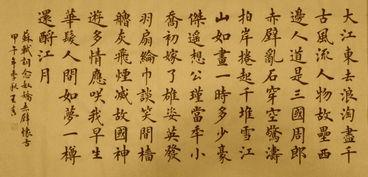 大江東去浪淘盡千
古風流人物故壘西
邊人道是三國周郎
赤壁亂石穿空驚濤
拍岸捲起千堆雪江
山如畫一時多少豪
傑遥想公瑾當秊小
喬初嫁了雄姿英發
羽扇綸巾談笑間檣
艣灰飛煙滅故國神
遊多情應咲我早生
華髮人間如夢一樽
還酹江月
蘇軾詞念奴嬌赤壁懷古
甲午年季秋王